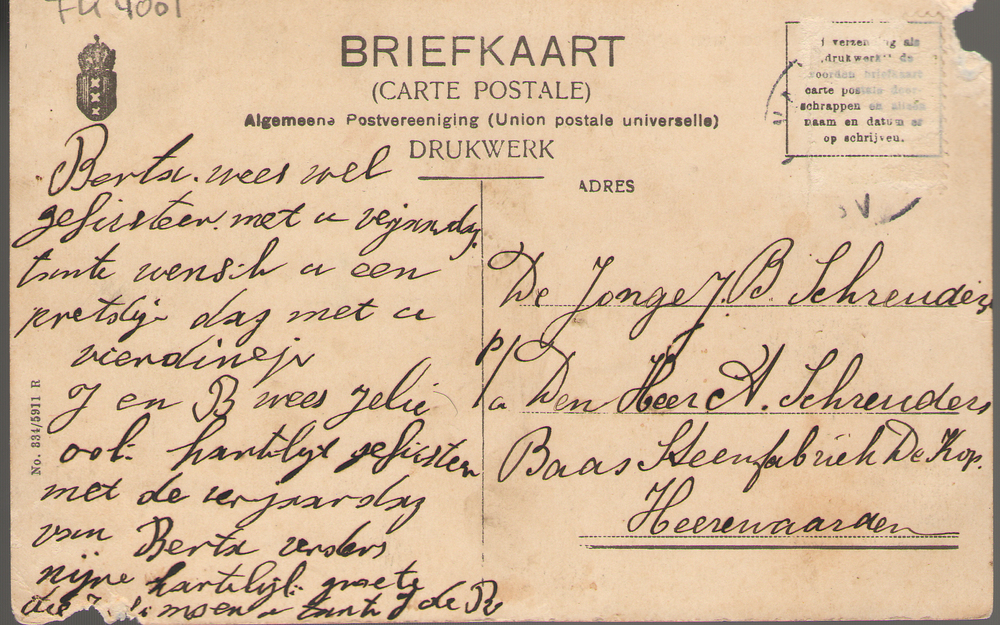 7U 4001
BRIEFKAART
(CARTE POSTALE)
Algemeene Postvereeniging (Union postale universelle)
DRUKWERK
ADRES
verzen ng als
"drukwerk" de
woorden briefkaart
carte postale door-
schrappen en alleen
naam en datum er
op schrijven.
No. 334/5911 R
Berta wees wel
gefisteer met u verjaardag
tante wensch u een
pretdije dag met u
vierdinejr
J en B wees jelie
ook hartelijt gefisteer
met de verjaardag
van Berta verders
mijne hartelijk groete
tante J de B
De Jonge J. B Schreuders
p/a Den Heer A. Schreuders
Baas Steenfabriek De Kop.
Heerewaarden